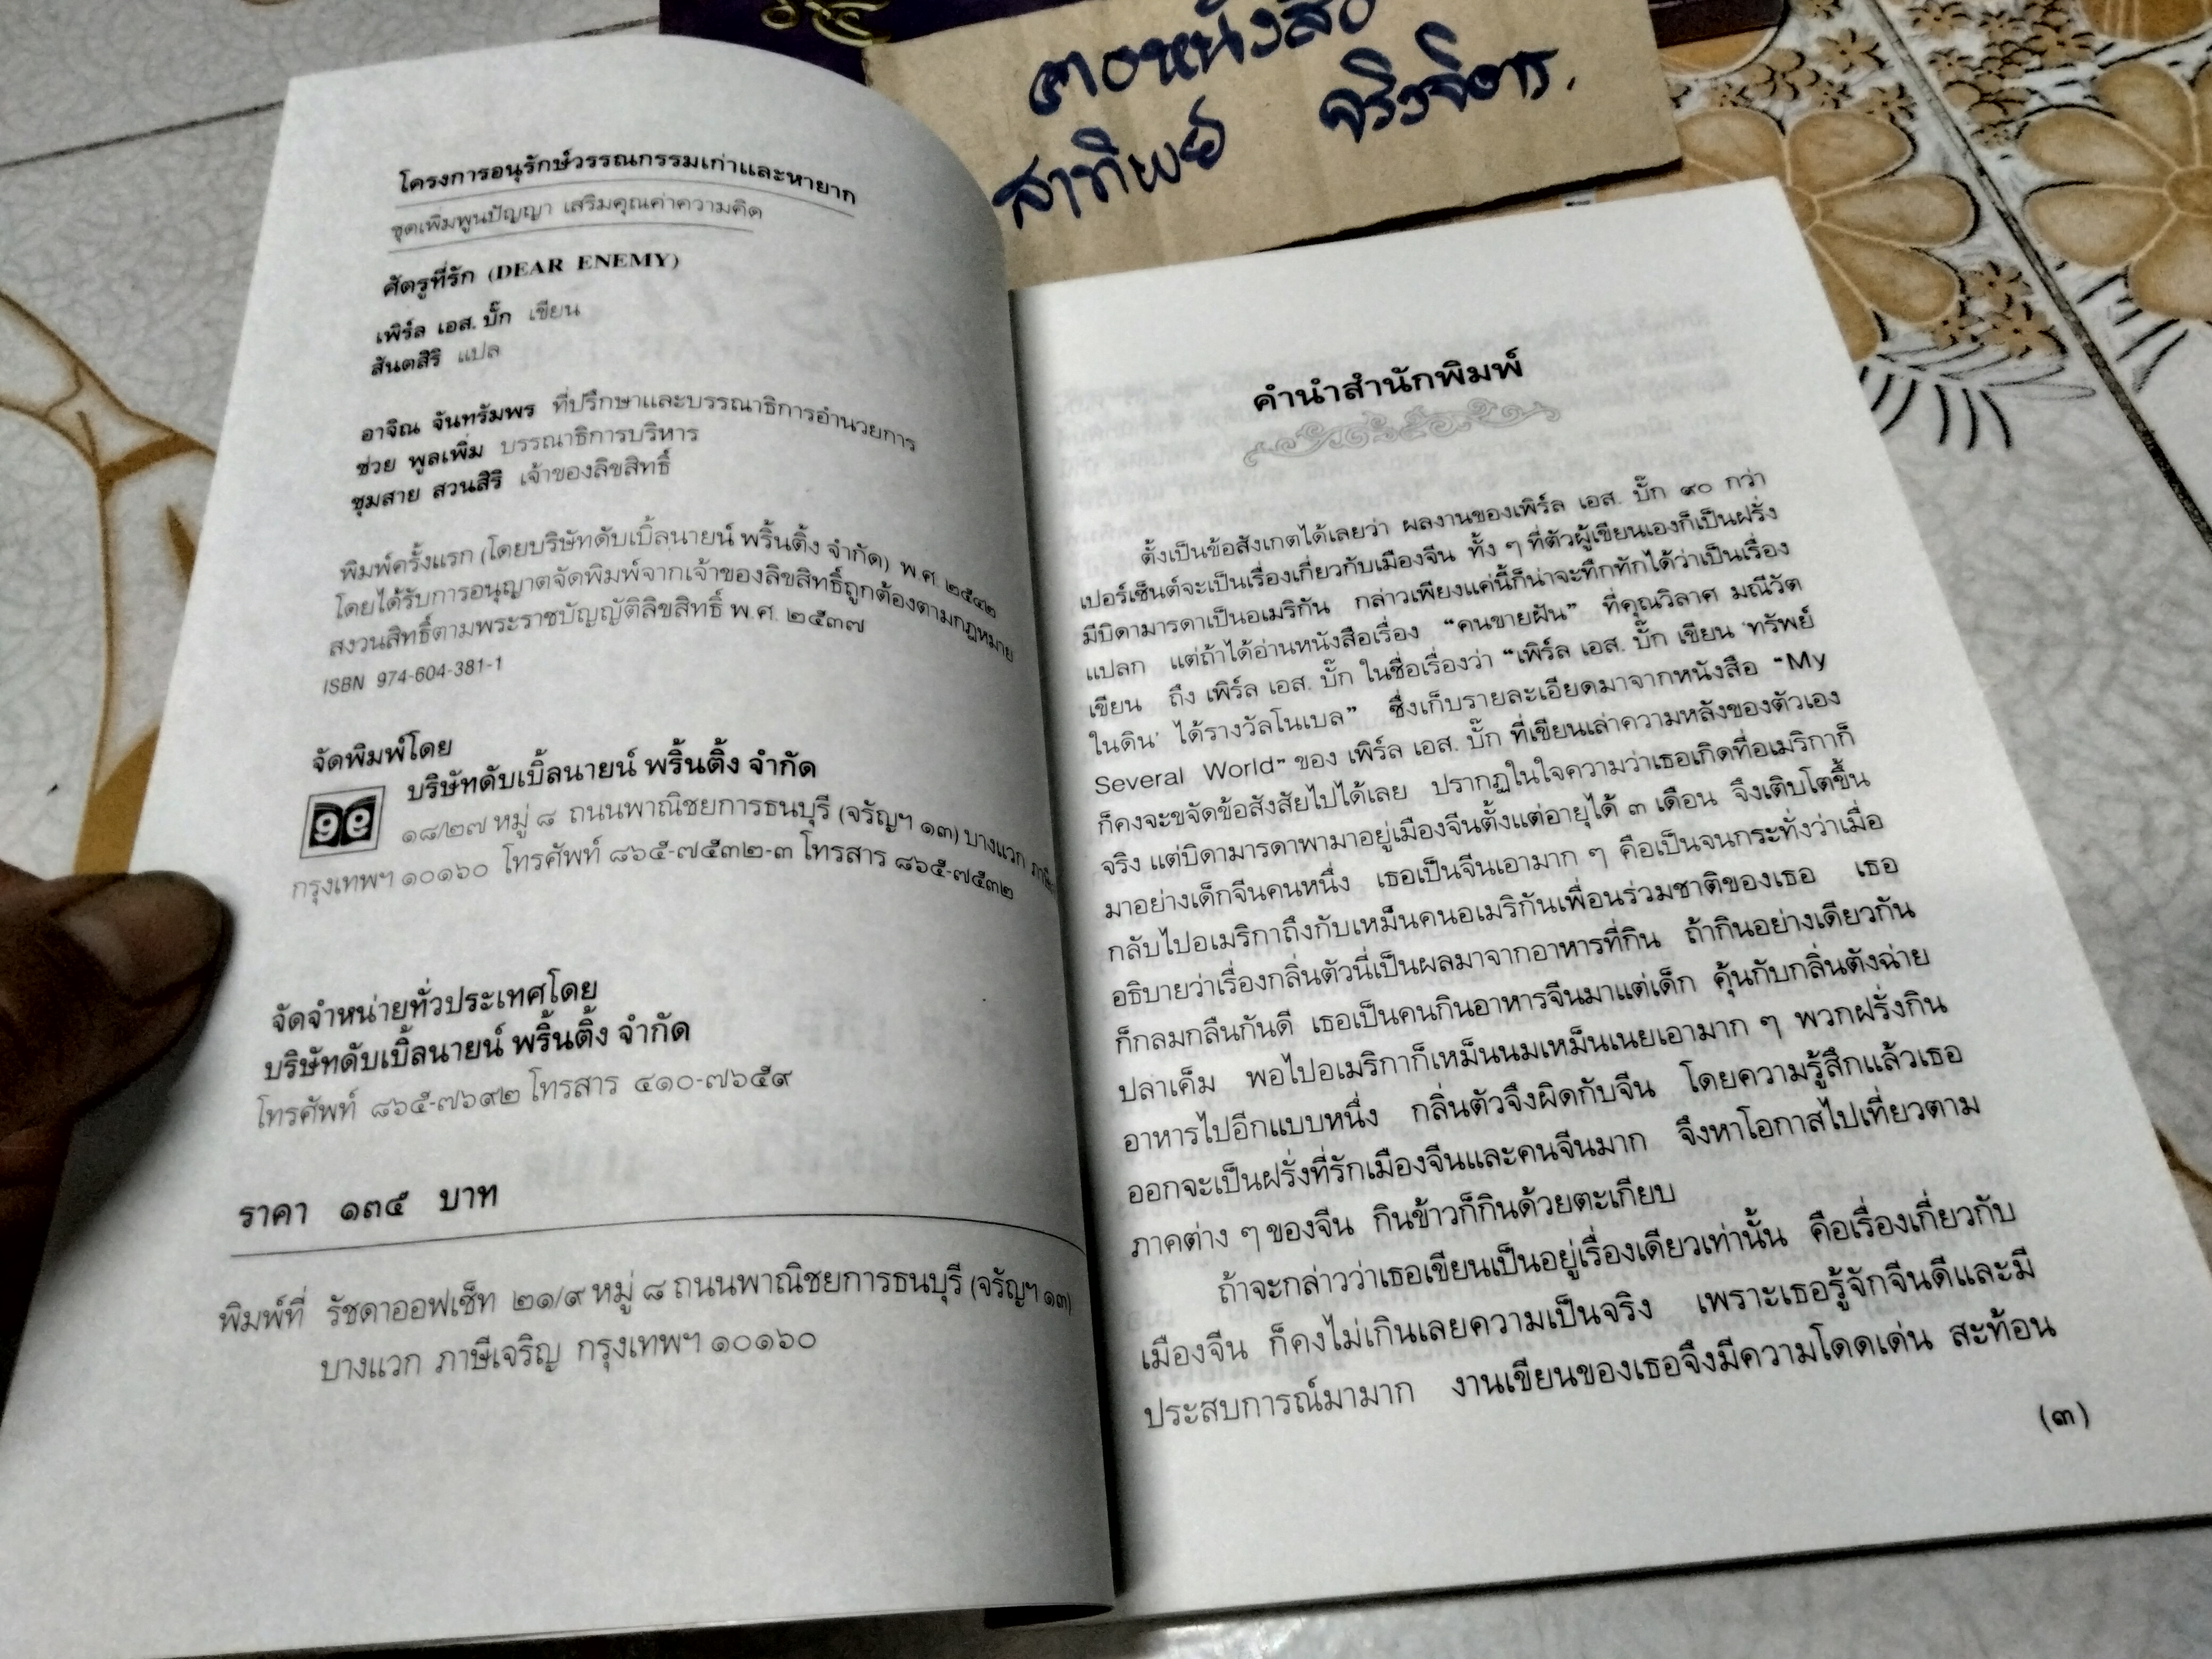 คอหนังสือ
สาทิพย์ จริงจิตร.
โครงการอนุรักษ์วรรณกรรมเก่าและหายาก
ชุดเพิ่มพูนปัญญา เสริมคุณค่าความคิด
ศัตรูที่รัก (DEAR ENEMY)
เพิร์ล เอส. บั๊ก เขียน
สันตสิริ แปล
อาจิณ จันทรัมพร ที่ปรึกษาและบรรณาธิการอำนวยการ
ช่วย พูลเพิ่ม บรรณาธิการบริหาร
ชุมสาย สวนสิริ เจ้าของลิขสิทธิ์
พิมพ์ครั้งแรก (โดยบริษัทดับเบิ้ลนายน์ พริ้นติ้ง จำกัด) พ.ศ. ๒๕๔๒
โดยได้รับการอนุญาตจัดพิมพ์จากเจ้าของลิขสิทธิ์ถูกต้องตามกฎหมาย
สงวนสิทธิ์ตามพระราชบัญญัติลิขสิทธิ์ พ.ศ. ๒๕๓๗
ISBN 974-604-381-1
จัดพิมพ์โดย
บริษัทดับเบิ้ลนายน์ พริ้นติ้ง จำกัด
๑๘/๒๗ หมู่ ๘ ถนนพาณิชยการธนบุรี (จรัญฯ ๑๓) บางแวก
กรุงเทพฯ ๑๐๑๖๐ โทรศัพท์ ๘๖๕-๗๕๓๒-๓ โทรสาร ๘๖๕-๗๕๓๒
จัดจำหน่ายทั่วประเทศโดย
บริษัทดับเบิ้ลนายน์ พริ้นติ้ง จำกัด
โทรศัพท์ ๘๖๕-๗๖๙๒ โทรสาร ๔๑๐-๗๖๕๙
ราคา ๑๓๕ บาท
พิมพ์ที่ รัชดาออฟเซ็ท ๒๑/๙ หมู่ ๘ ถนนพาณิชยการธนบุรี (จรัญฯ ๑๓)
บางแวก ภาษีเจริญ กรุงเทพฯ ๑๐๑๖๐
คำนำสำนักพิมพ์
ตั้งเป็นข้อสังเกตได้เลยว่า ผลงานของเพิร์ล เอส. บั๊ก ๙๐ กว่า
เปอร์เซ็นต์จะเป็นเรื่องเกี่ยวกับเมืองจีน ทั้ง ๆ ที่ตัวผู้เขียนเองก็เป็นฝรั่ง
มีบิดามารดาเป็นอเมริกัน กล่าวเพียงแค่นี้ก็น่าจะทึกทักได้ว่าเป็นเรื่อง
แปลก แต่ถ้าได้อ่านหนังสือเรื่อง “คนขายฝัน” ที่คุณวิลาศ มณีวัต
เขียน ถึง เพิร์ล เอส. บั๊ก ในชื่อเรื่องว่า “เพิร์ล เอส. บั๊ก เขียน ‘ทรัพย์
ในดิน’ ได้รางวัลโนเบล” ซึ่งเก็บรายละเอียดมาจากหนังสือ “My
Several World” ของ เพิร์ล เอส. บั๊ก ที่เขียนเล่าความหลังของตัวเอง
ก็คงจะขจัดข้อสงสัยไปได้เลย ปรากฏในใจความว่าเธอเกิดที่อเมริกาก็
จริง แต่บิดามารดาพามาอยู่เมืองจีนตั้งแต่อายุได้ ๓ เดือน จึงเติบโตขึ้น
มาอย่างเด็กจีนคนหนึ่ง เธอเป็นจีนเอามาก ๆ คือเป็นจนกระทั่งว่าเมื่อ
กลับไปอเมริกาถึงกับเหม็นคนอเมริกันเพื่อนร่วมชาติของเธอ เธอ
อธิบายว่าเรื่องกลิ่นตัวนี่เป็นผลมาจากอาหารที่กิน ถ้ากินอย่างเดียวกัน
ก็กลมกลืนกันดี เธอเป็นคนกินอาหารจีนมาแต่เด็ก คุ้นกับกลิ่นตังฉ่าย
ปลาเค็ม พอไปอเมริกาก็เหม็นนมเหม็นเนยเอามาก ๆ พวกฝรั่งกิน
อาหารไปอีกแบบหนึ่ง กลิ่นตัวจึงผิดกับจีน โดยความรู้สึกแล้วเธอ
ออกจะเป็นฝรั่งที่รักเมืองจีนและคนจีนมาก จึงหาโอกาสไปเที่ยวตาม
ภาคต่าง ๆ ของจีน กินข้าวก็กินด้วยตะเกียบ
ถ้าจะกล่าวว่าเธอเขียนเป็นอยู่เรื่องเดียวเท่านั้น คือเรื่องเกี่ยวกับ
เมืองจีน ก็คงไม่เกินเลยความเป็นจริง เพราะเธอรู้จักจีนดีและมี
ประสบการณ์มามาก งานเขียนของเธอจึงมีความโดดเด่น สะท้อน
(๓)